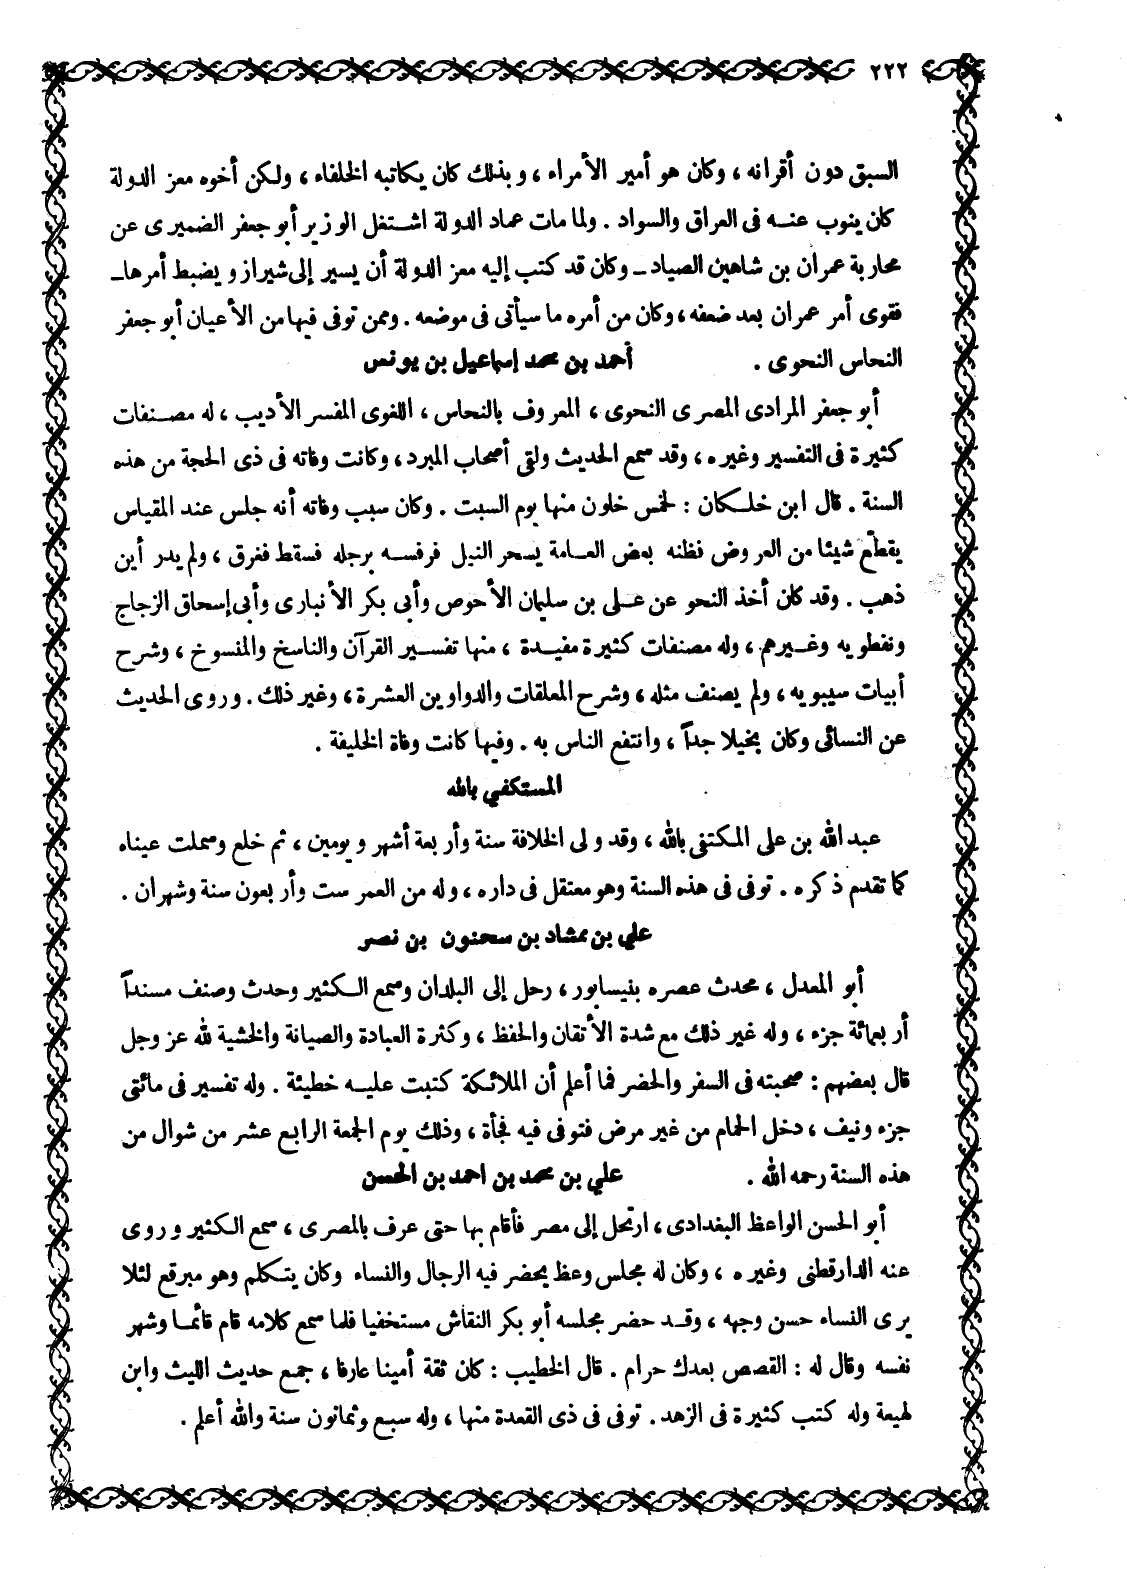 ٢٢٢
السبق دون أقرانه ، وكان هو أمير الأمراء ، وبذلك كان يكاتبه الخلفاء ، ولكن أخوه معز الدولة
كان ينوب عنه فى العراق والسواد . ولما مات عماد الدولة اشتغل الوزير أبو جعفر الضميرى عن
محاربة عمران بن شاهين الصياد ـ وكان قد كتب إليه معز الدولة أن يسير إلى شيراز ويضبط أمرها ـ
فقوى أمر عمران بعد ضعفه ، وكان من أمره ما سيأتى فى موضعه . وممن توفى فيها من الأعيان أبو جعفر
النحاس النحوى . أحمد بن محمد إسماعيل بن يونس
أبو جعفر المرادى المصرى النحوى ، المعروف بالنحاس ، اللغوى المفسر الأديب ، له مصنفات
كثيرة فى التفسير وغيره ، وقد سمع الحديث ولقى أصحاب المبرد ، وكانت وفاته فى ذى الحجة من هذه
السنة . قال ابن خلكان : لخمس خلون منها يوم السبت . وكان سبب وفاته أنه جلس عند المقياس
يقطّع شيئا من العروض فظنه بعض العامة يسحر النيل فرفسه برجله فسقط فغرق ، ولم يدر أين
ذهب . وقد كان أخذ النحو عن على بن سليمان الأحوص وأبى بكر الأنبارى وأبى إسحاق الزجاج
ونفطويه وغيرهم ، وله مصنفات كثيرة مفيدة ، منها تفسير القرآن والناسخ والمنسوخ ، وشرح
أبيات سيبويه ، ولم يصنف مثله ، وشرح المعلقات والدواوين العشرة ، وغير ذلك . وروى الحديث
عن النسائى وكان بخيلا جداً ، وانتفع الناس به . وفيها كانت وفاة الخليفة .
المستكفي بالله
عبد الله بن على المكتفى بالله ، وقد ولى الخلافة سنة وأربعة أشهر ويومين ، ثم خلع وسملت عيناه
كما تقدم ذكره . توفى فى هذه السنة وهو معتقل فى داره ، وله من العمر ست وأربعون سنة وشهران .
علي بن ممشاد بن سحنون بن نصر
أبو المعدل ، محدث عصره بنيسابور ، رحل إلى البلدان وسمع الكثير وحدث وصنف مسنداً
أربعمائة جزء ، وله غير ذلك مع شدة الأتقان والحفظ ، وكثرة العبادة والصيانة والخشية لله عز وجل
قال بعضهم : صحبته فى السفر والحضر فما أعلم أن الملائكة كتبت عليه خطيئة . وله تفسير فى مائتى
جزء ونيف ، دخل الحمام من غير مرض فتوفى فيه فجأة ، وذلك يوم الجمعة الرابع عشر من شوال من
هذه السنة رحمه الله . علي بن محمد بن احمد بن الحسن
أبو الحسن الواعظ البغدادى ، ارتحل إلى مصر فأقام بها حتى عرف بالمصرى ، سمع الكثير وروى
عنه الدارقطنى وغيره ، وكان له مجلس وعظ يحضر فيه الرجال والنساء وكان يتكلم وهو مبرقع لئلا
يرى النساء حسن وجهه ، وقد حضر مجلسه أبو بكر النقاش مستخفيا فلما سمع كلامه قام قائما وشهر
نفسه وقال له : القصص بعدك حرام . قال الخطيب : كان ثقة أمينا عارفا ، جمع حديث الليث وابن
لهيعة وله كتب كثيرة فى الزهد . توفى فى ذى القعدة منها ، وله سبع وثمانون سنة والله أعلم .